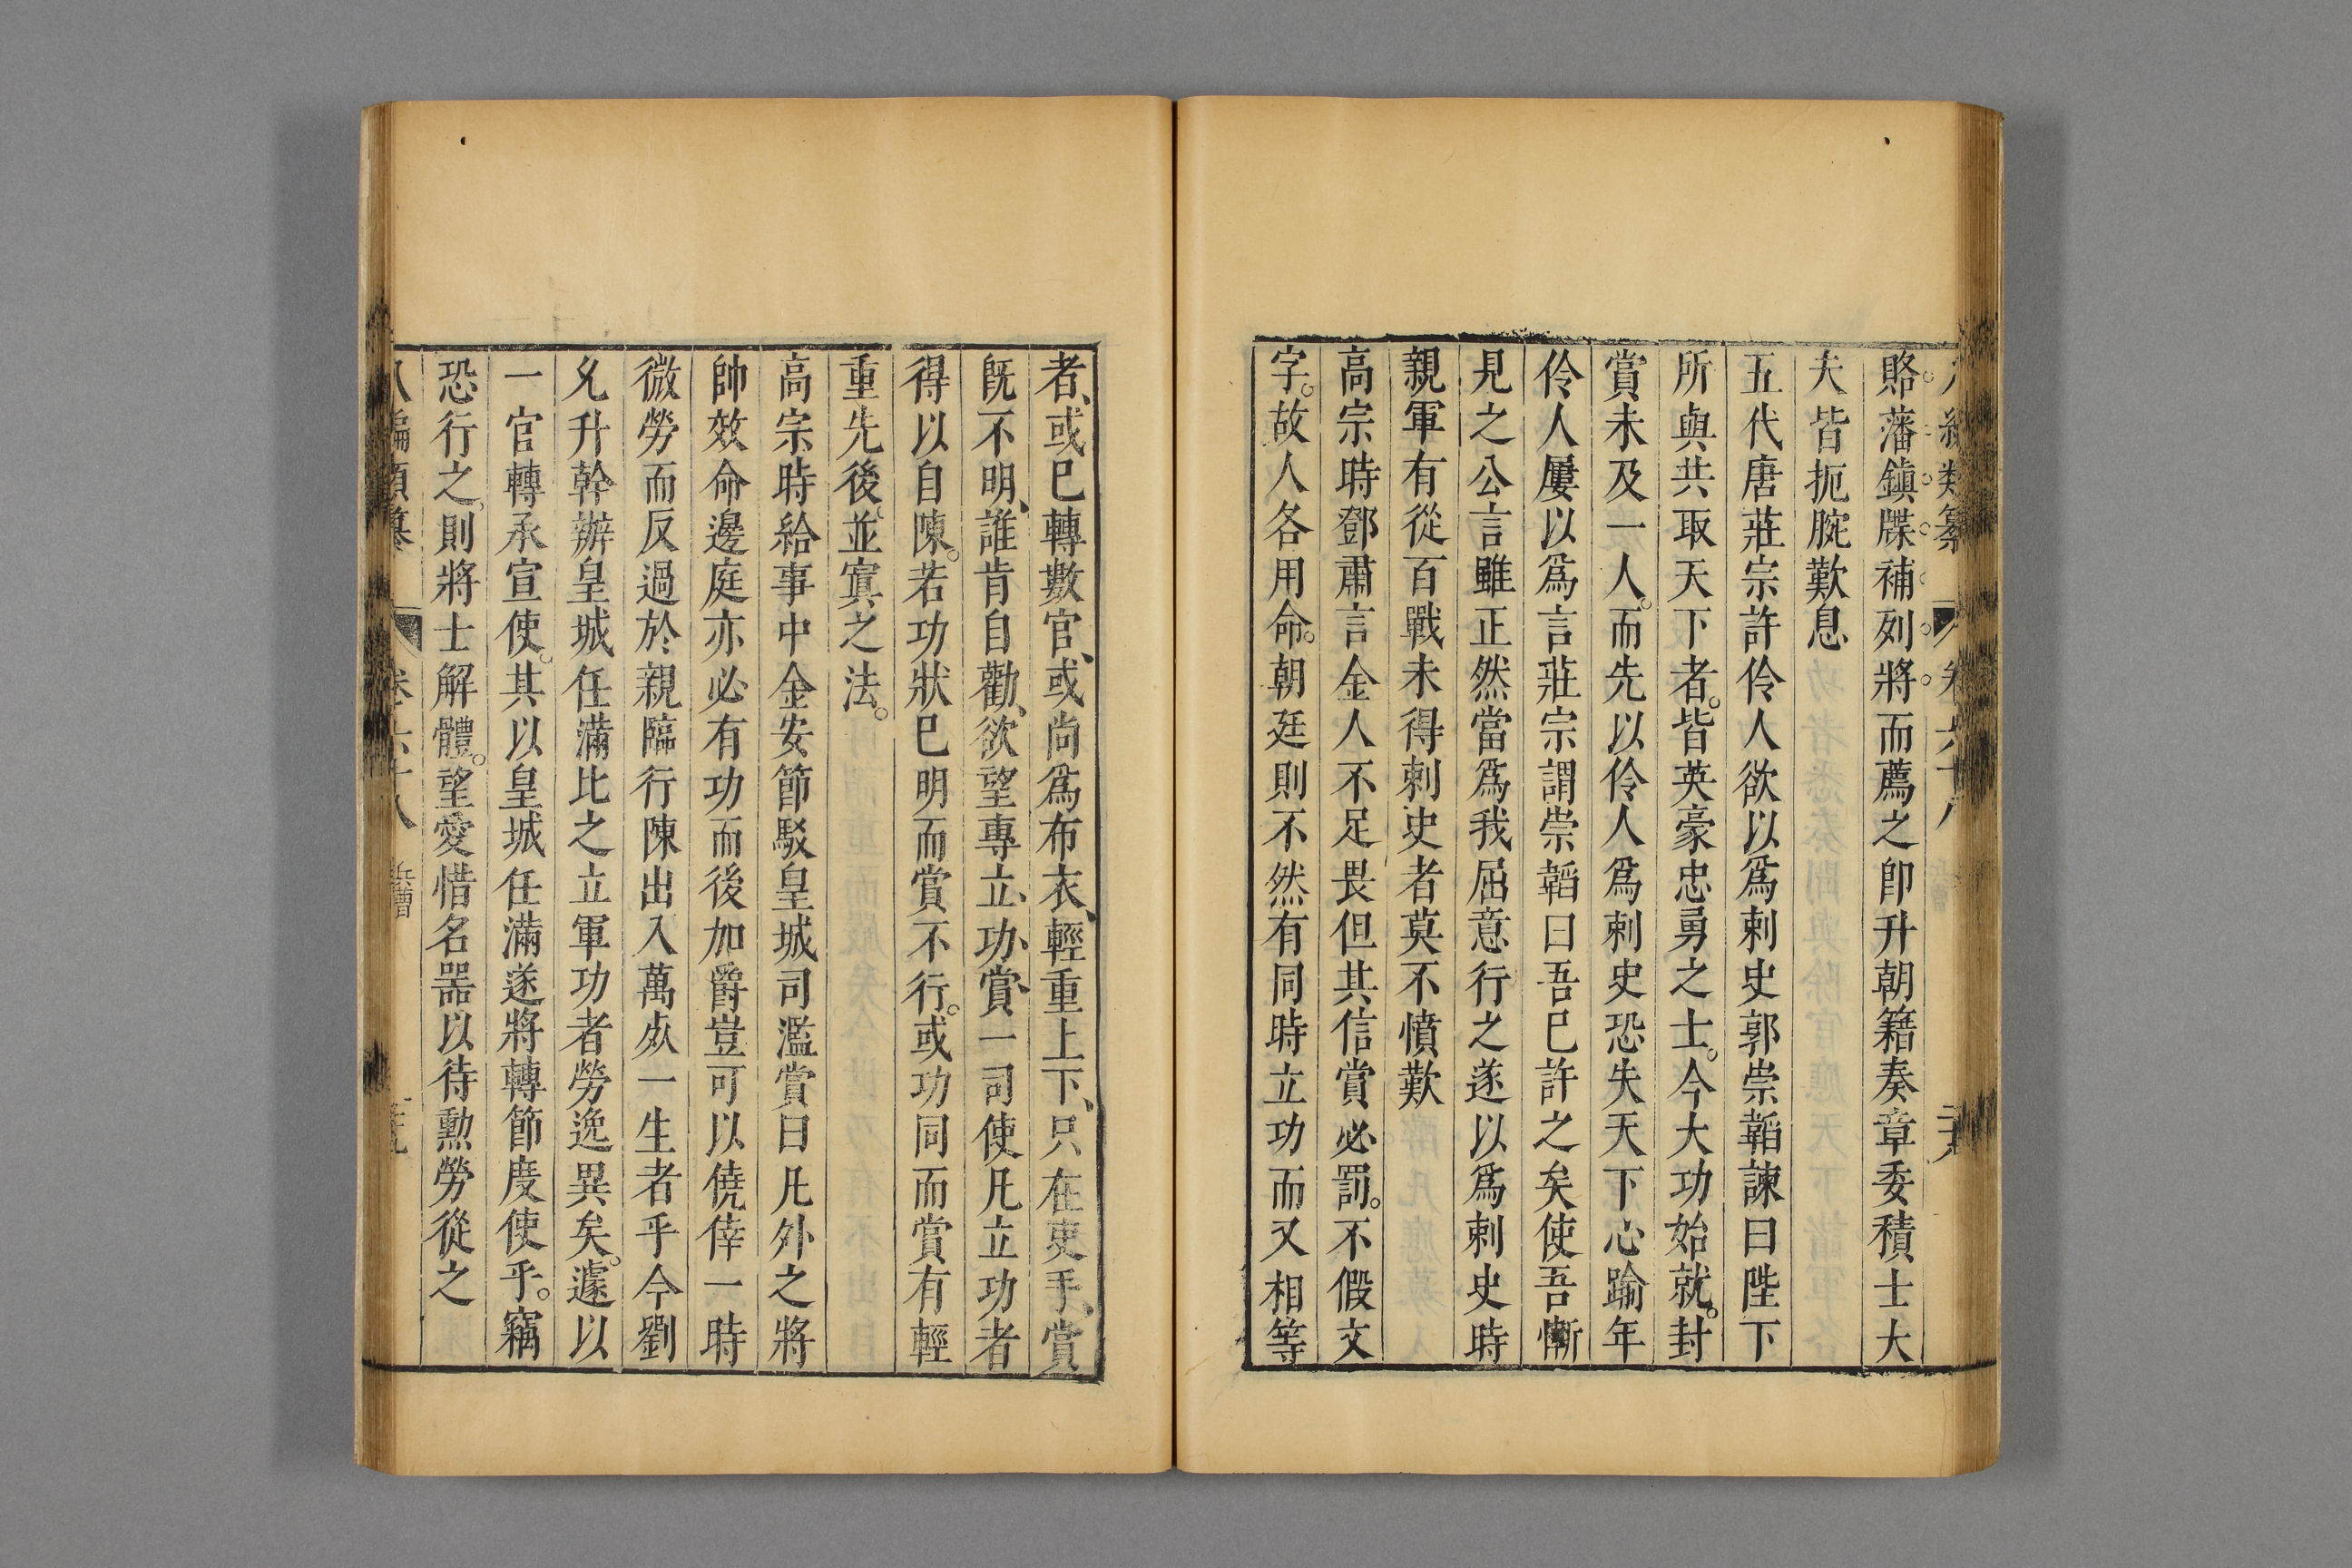 賂藩鎮牒補列將而薦之卽升朝籍奏章委積士大
夫皆扼腕歎息
五代唐莊宗許伶人欲以爲刺史郭崇韜諫曰陛下
所與共取天下者。皆英豪忠勇之士。今大功始就。封
賞未及一人。而先以伶人爲刺史恐失天下心踰年
伶人屢以爲言莊宗謂崇韜曰吾已許之矣使吾慚
見之公言雖正然當爲我屈意行之遂以爲刺史時
親軍有從百戰未得刺史者莫不憤歎
高宗時鄧肅言金人不足畏但其信賞必罰。不假文
字。故人各用命。朝廷則不然有同時立功而又相等
者、或已轉數官、或尚爲布衣、輕重上下、只在吏手、賞
旣不明、誰肯自勸、欲望專立功賞一司使凡立功者
得以自陳。若功狀已明而賞不行。或功同而賞有輕
重先後、並寘之法。
高宗時給事中金安節駁皇城司濫賞曰凡外之將
帥效命邊庭亦必有功而後加爵豈可以僥倖一時
微勞而反過於親臨行陳出入萬死一生者乎今劉
允升幹辦皇城任滿比之立軍功者勞逸異矣。遽以
一官轉承宣使。其以皇城任滿遂將轉節度使乎。竊
恐行之。則將士解體。望愛惜名器以待勲勞從之
八編類纂 卷六十八 兵曹